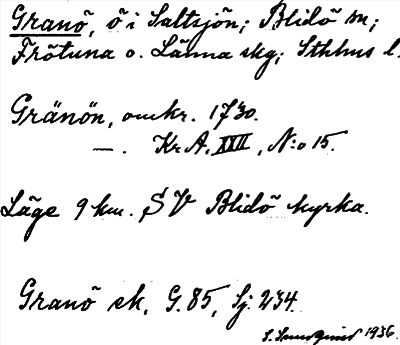 Granö, ö i Saltsjön; Blidö sn;
Frötuna o. Länna skg; Sthlms l.
Gränön, omkr. 1730.
— . Kr A, XXII, N:o 15.
Läge 9 km. SV Blidö kyrka.
Granö sk, G. 85, Sj. 234.
S. Sundqvist 1936.